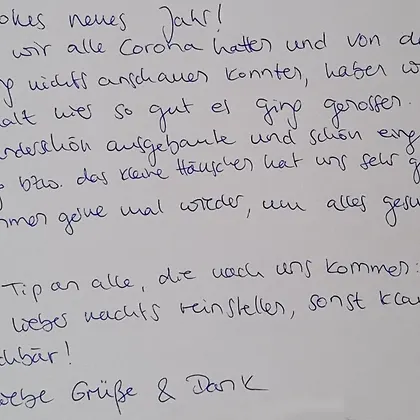 ohes neues Jahr!
wir alle Corona hatten und von de
nichts anschauen konnten, haben wi
alt hier so gut es ging genossen.
nderschön ausgebaute und schön eing
bzw. das kleine Häuschen hat uns sehr g
mmen gerne mal wieder, um alles gesu
Tip an alle, die nach uns kommen:
liebes nachts reinstellen, sonst klau
chbär!
iebe Grüße & Dank